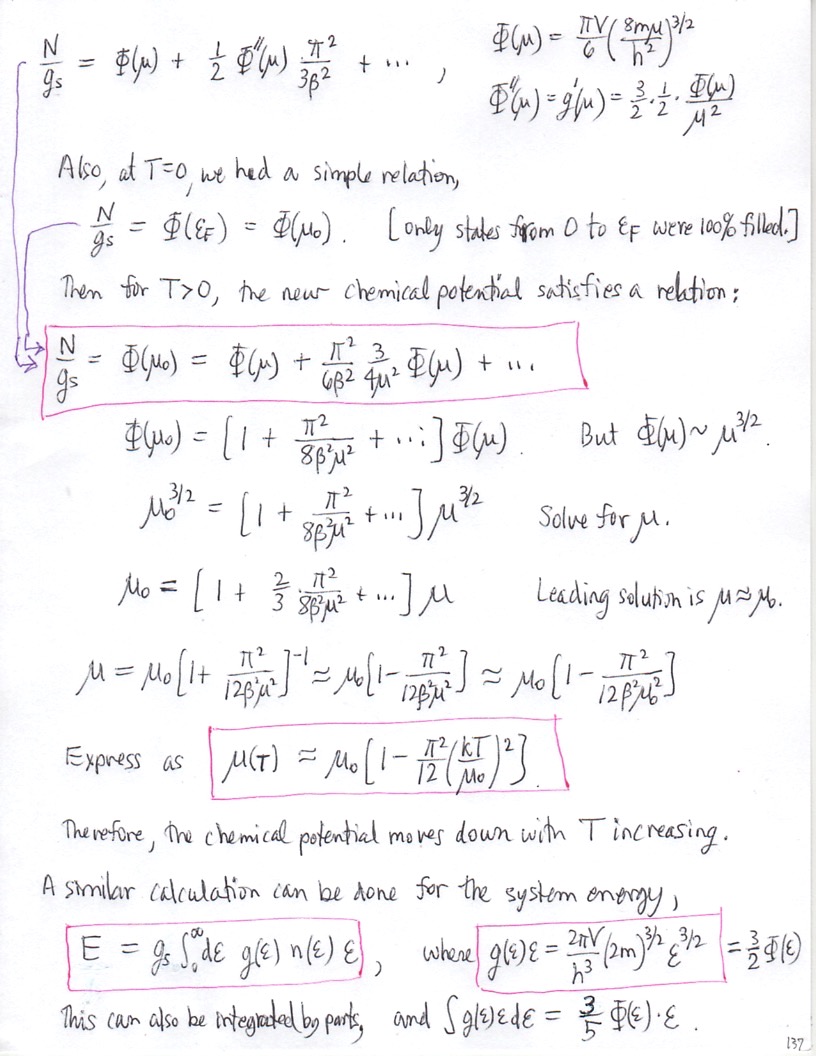 N/gs = Φ(μ) + 1/2 Φ''(μ) π²/3β² + ... , Φ(μ) = πV/6 (8mμ/h²)^3/2
Φ''(μ) = g'(μ) = 3/2 · 1/2 · Φ(μ)/μ²
Also, at T=0, we had a simple relation,
N/gs = Φ(εF) = Φ(μ₀). [only states from 0 to εF were 100% filled.]
Then for T>0, the new chemical potential satisfies a relation:
N/gs = Φ(μ₀) = Φ(μ) + π²/6β² 3/4μ² Φ(μ) + ...
Φ(μ₀) = [1 + π²/8β²μ² + ...] Φ(μ). But Φ(μ) ~ μ^3/2.
μ₀^3/2 = [1 + π²/8β²μ² + ...] μ^3/2 Solve for μ.
μ₀ = [1 + 2/3 · π²/8β²μ² + ...] μ Leading solution is μ≈μ₀.
μ = μ₀[1+ π²/12β²μ²]^-1 ≈ μ₀[1- π²/12β²μ²] ≈ μ₀[1 - π²/12β²μ₀²]
Express as μ(T) ≈ μ₀[1 - π²/12 (kT/μ₀)²].
Therefore, the chemical potential moves down with T increasing.
A similar calculation can be done for the system energy,
E = gs ∫₀^∞ dε g(ε) n(ε) ε, where g(ε)ε = 2πV/h³ (2m)^3/2 ε^3/2 = 3/2 Φ(ε)
This can also be integrated by parts, and ∫g(ε)εdε = 3/5 Φ(ε)·ε.
137